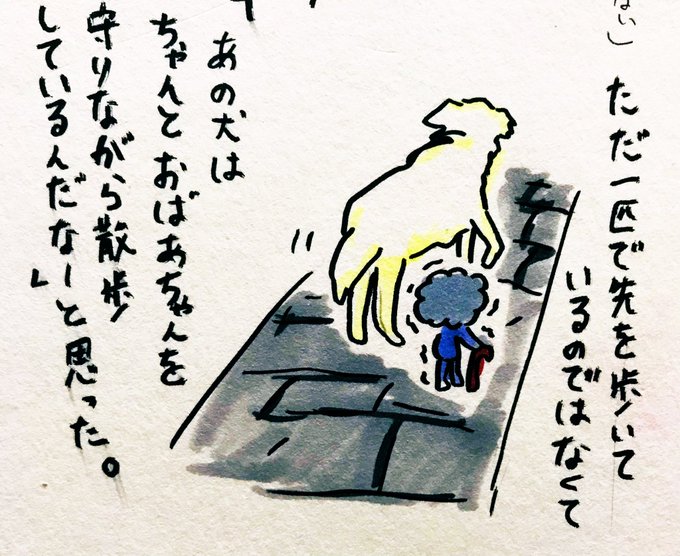 ない」
ただ一匹で先を歩いて
いるのではなくて
あの犬は
ちゃんとおばあちゃんを
守りながら散歩
しているんだなーと思った。